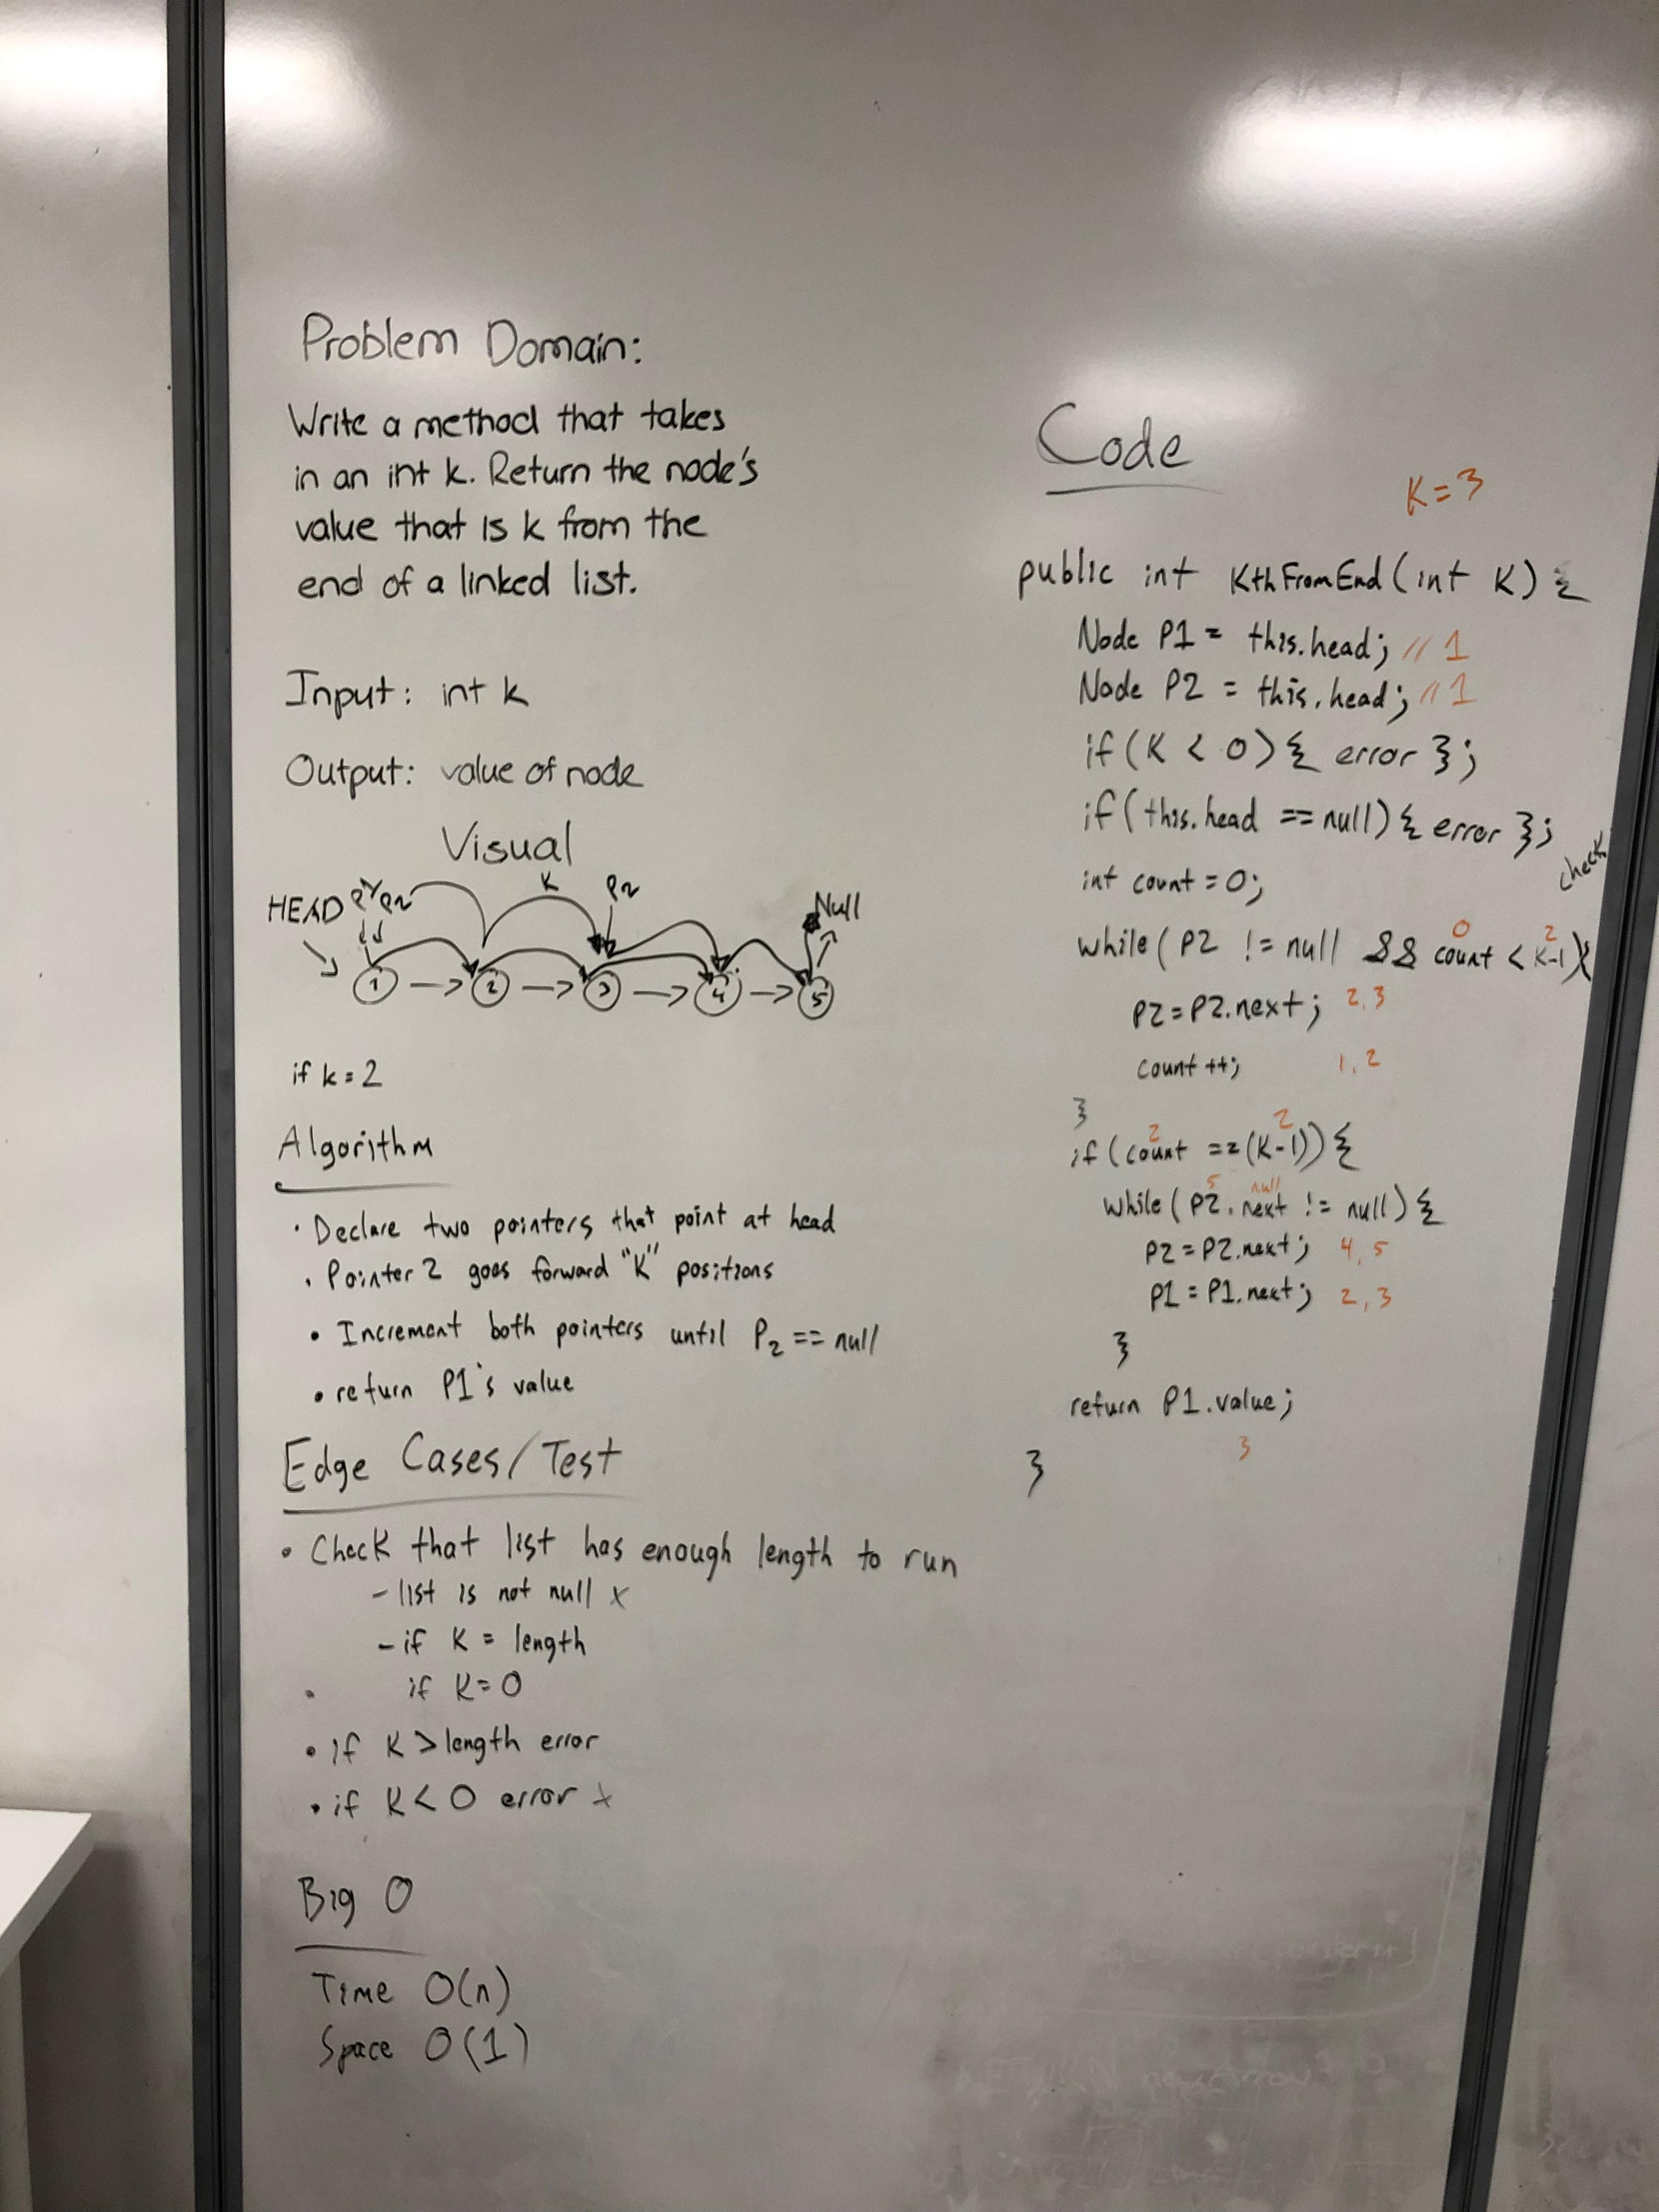 Problem Domain:
Write a method that takes
in an int k. Return the node's
value that is k from the
end of a linked list.
Input: int k
Output: value of node
Visual
HEAD P1 P2 K P2 Null
1 2 3 4 5
if k = 2
Algorithm
• Declare two pointers that point at head
• Pointer 2 goes forward "K" positions
• Increment both pointers until P2 == null
• return P1's value
Edge Cases/Test
• Check that list has enough length to run
- list is not null x
- if K = length
• if K = 0
• if K > length error
• if K < 0 error x
Big O
Time O(n)
Space O(1)
Code
K = 3
public int KthFromEnd(int K) {
Node P1 = this.head; // 1
Node P2 = this.head; // 1
if (K < 0) { error };
if (this.head == null) { error };
check
int count = 0;
0 2
while (P2 != null && count < K-1) {
P2 = P2.next; 2, 3
count ++; 1, 2
}
2 2
if (count == (K-1)) {
5 null
while (P2.next != null) {
P2 = P2.next; 4, 5
P1 = P1.next; 2, 3
}
return P1.value;
3
}